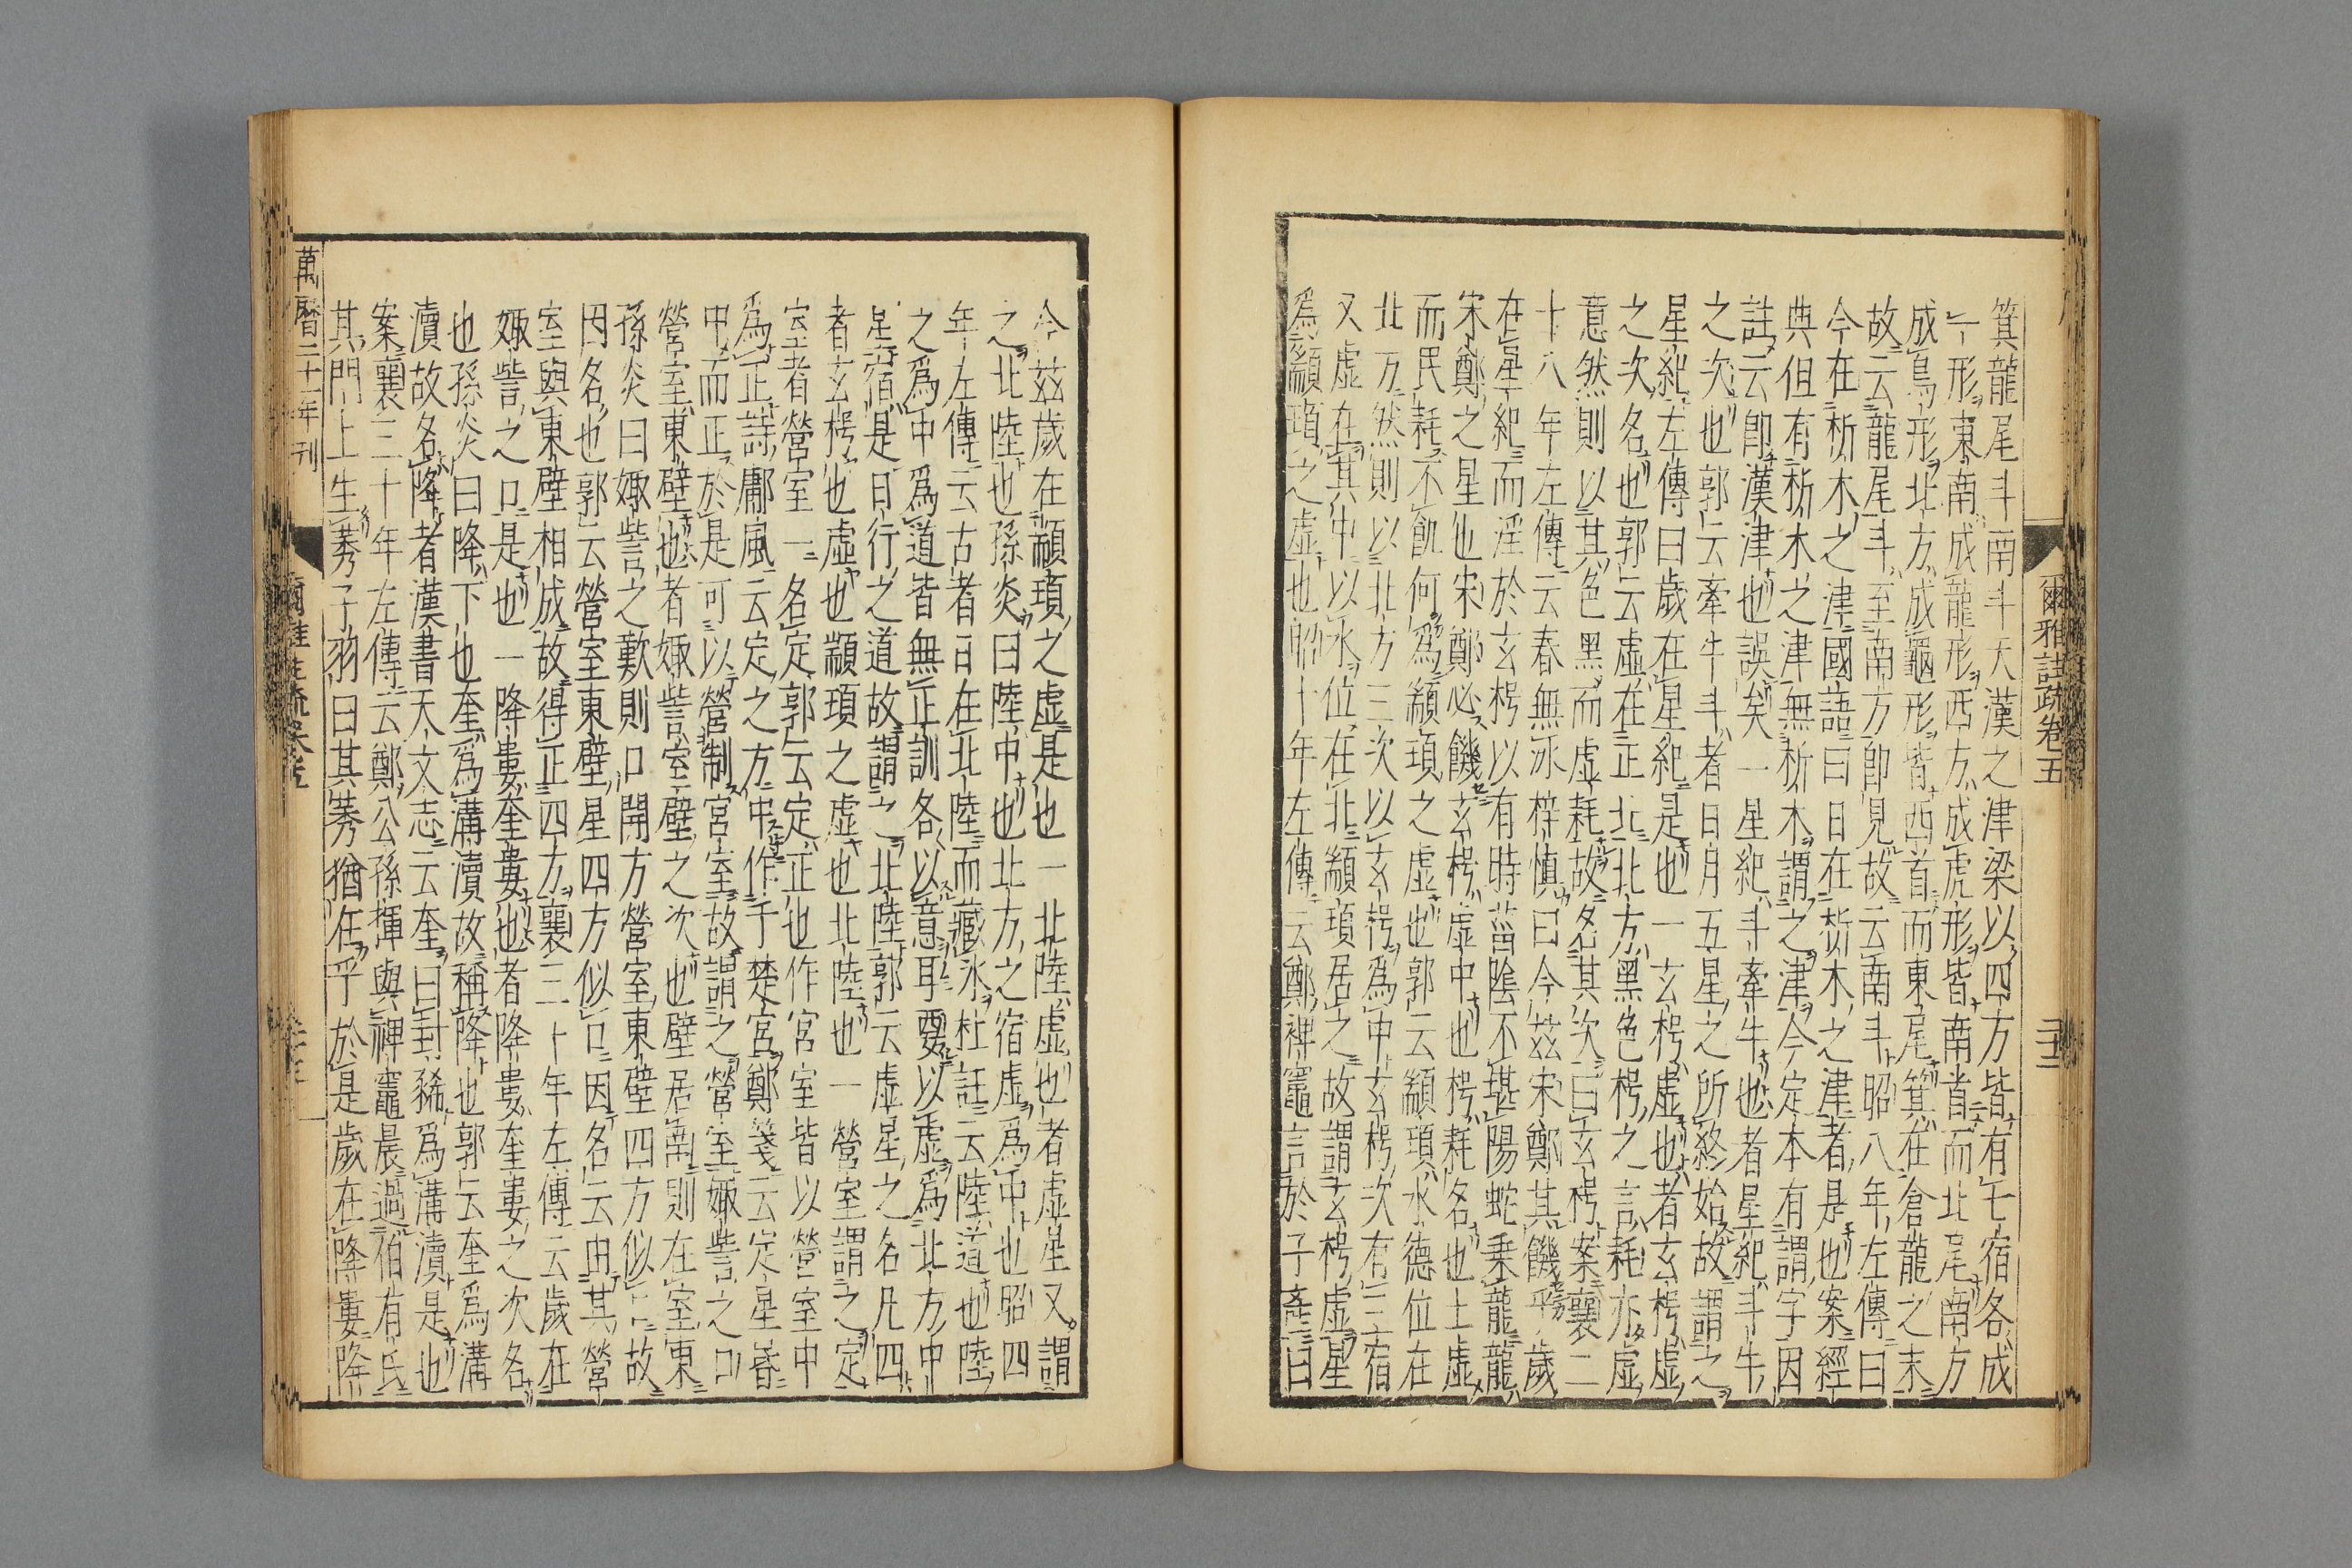 箕龍尾斗南斗天漢之津梁以四方皆有七宿各成
一形東南成龍形西方成虎形皆南首而北尾南方
成鳥形北方成龜形皆西首而東尾箕在倉龍之末
故云龍尾斗至南方即見故云南斗昭八年左傳曰
今在析木之津國語曰日在析木之津者是也案經
典但有析木之津無析木謂之津今定本有謂字因
註云即漢津也誤矣一星紀斗牽牛也者星紀斗牛
之次也郭云牽牛斗者日月五星之所終始故謂之
星紀左傳曰歲在星紀是也一玄枵虛也者玄枵虛
之次名也郭云虛在正北北方黑色枵之言耗耗亦虛
意然則以其色黑而虛耗故名其次曰玄枵案襄二
十八年左傳云春無冰梓慎曰今茲宋鄭其饑乎歲
在星紀而淫於玄枵以有時菑陰不堪陽蛇乗龍龍
宋鄭之星也宋鄭必饑玄枵虛中也枵耗名也土虛
而民耗不飢何爲顓頊之虛也郭云顓頊水德位在
北方然則以北方三次以玄枵爲中玄枵次有三宿
又虛在其中以水位在北顓頊居之故謂玄枵虛星
爲顓頊之虛也昭十年左傳云鄭裨竈言於子產曰
爾雅註疏卷五
二十三
今茲歲在顓頊之虛是也一北陸虛也者虛星又謂
之北陸也孫炎曰陸中也北方之宿虛爲中也昭四
年左傳云古者日在北陸而藏冰杜註云陸道也陸
之爲中爲道皆無正訓各以意耳要以虛爲北方中
星宿是日行之道故謂之北陸郭云虛星之名凡四
者玄枵也虛也顓頊之虛也北陸也一營室謂之定
室者營室一名定郭云定正也作宮室皆以營室中
爲正詩鄘風云定之方中作于楚宮鄭箋云定星昏
中而正於是可以營制宮室故謂之營室娵觜之口
營室東壁也者娵觜室壁之次也壁居南則在室東
孫炎曰娵觜之歎則口開方營室東壁四方似口故
因名也郭云營室東壁星四方似口因名云由其營
室與東壁相成故得正四方襄三十年左傳云歲在
娵訾之口是也一降婁奎婁也者降婁奎婁之次名
也孫炎曰降下也奎爲溝瀆故稱降也郭云奎爲溝
瀆故名降者漢書天文志云奎曰封豨爲溝瀆是也
案襄三十年左傳云鄭公孫揮與裨竈晨過伯有氏
其門上生莠子羽曰其莠猶在乎於是歲在降婁降
萬曆二十一年刊
爾雅註疏卷五